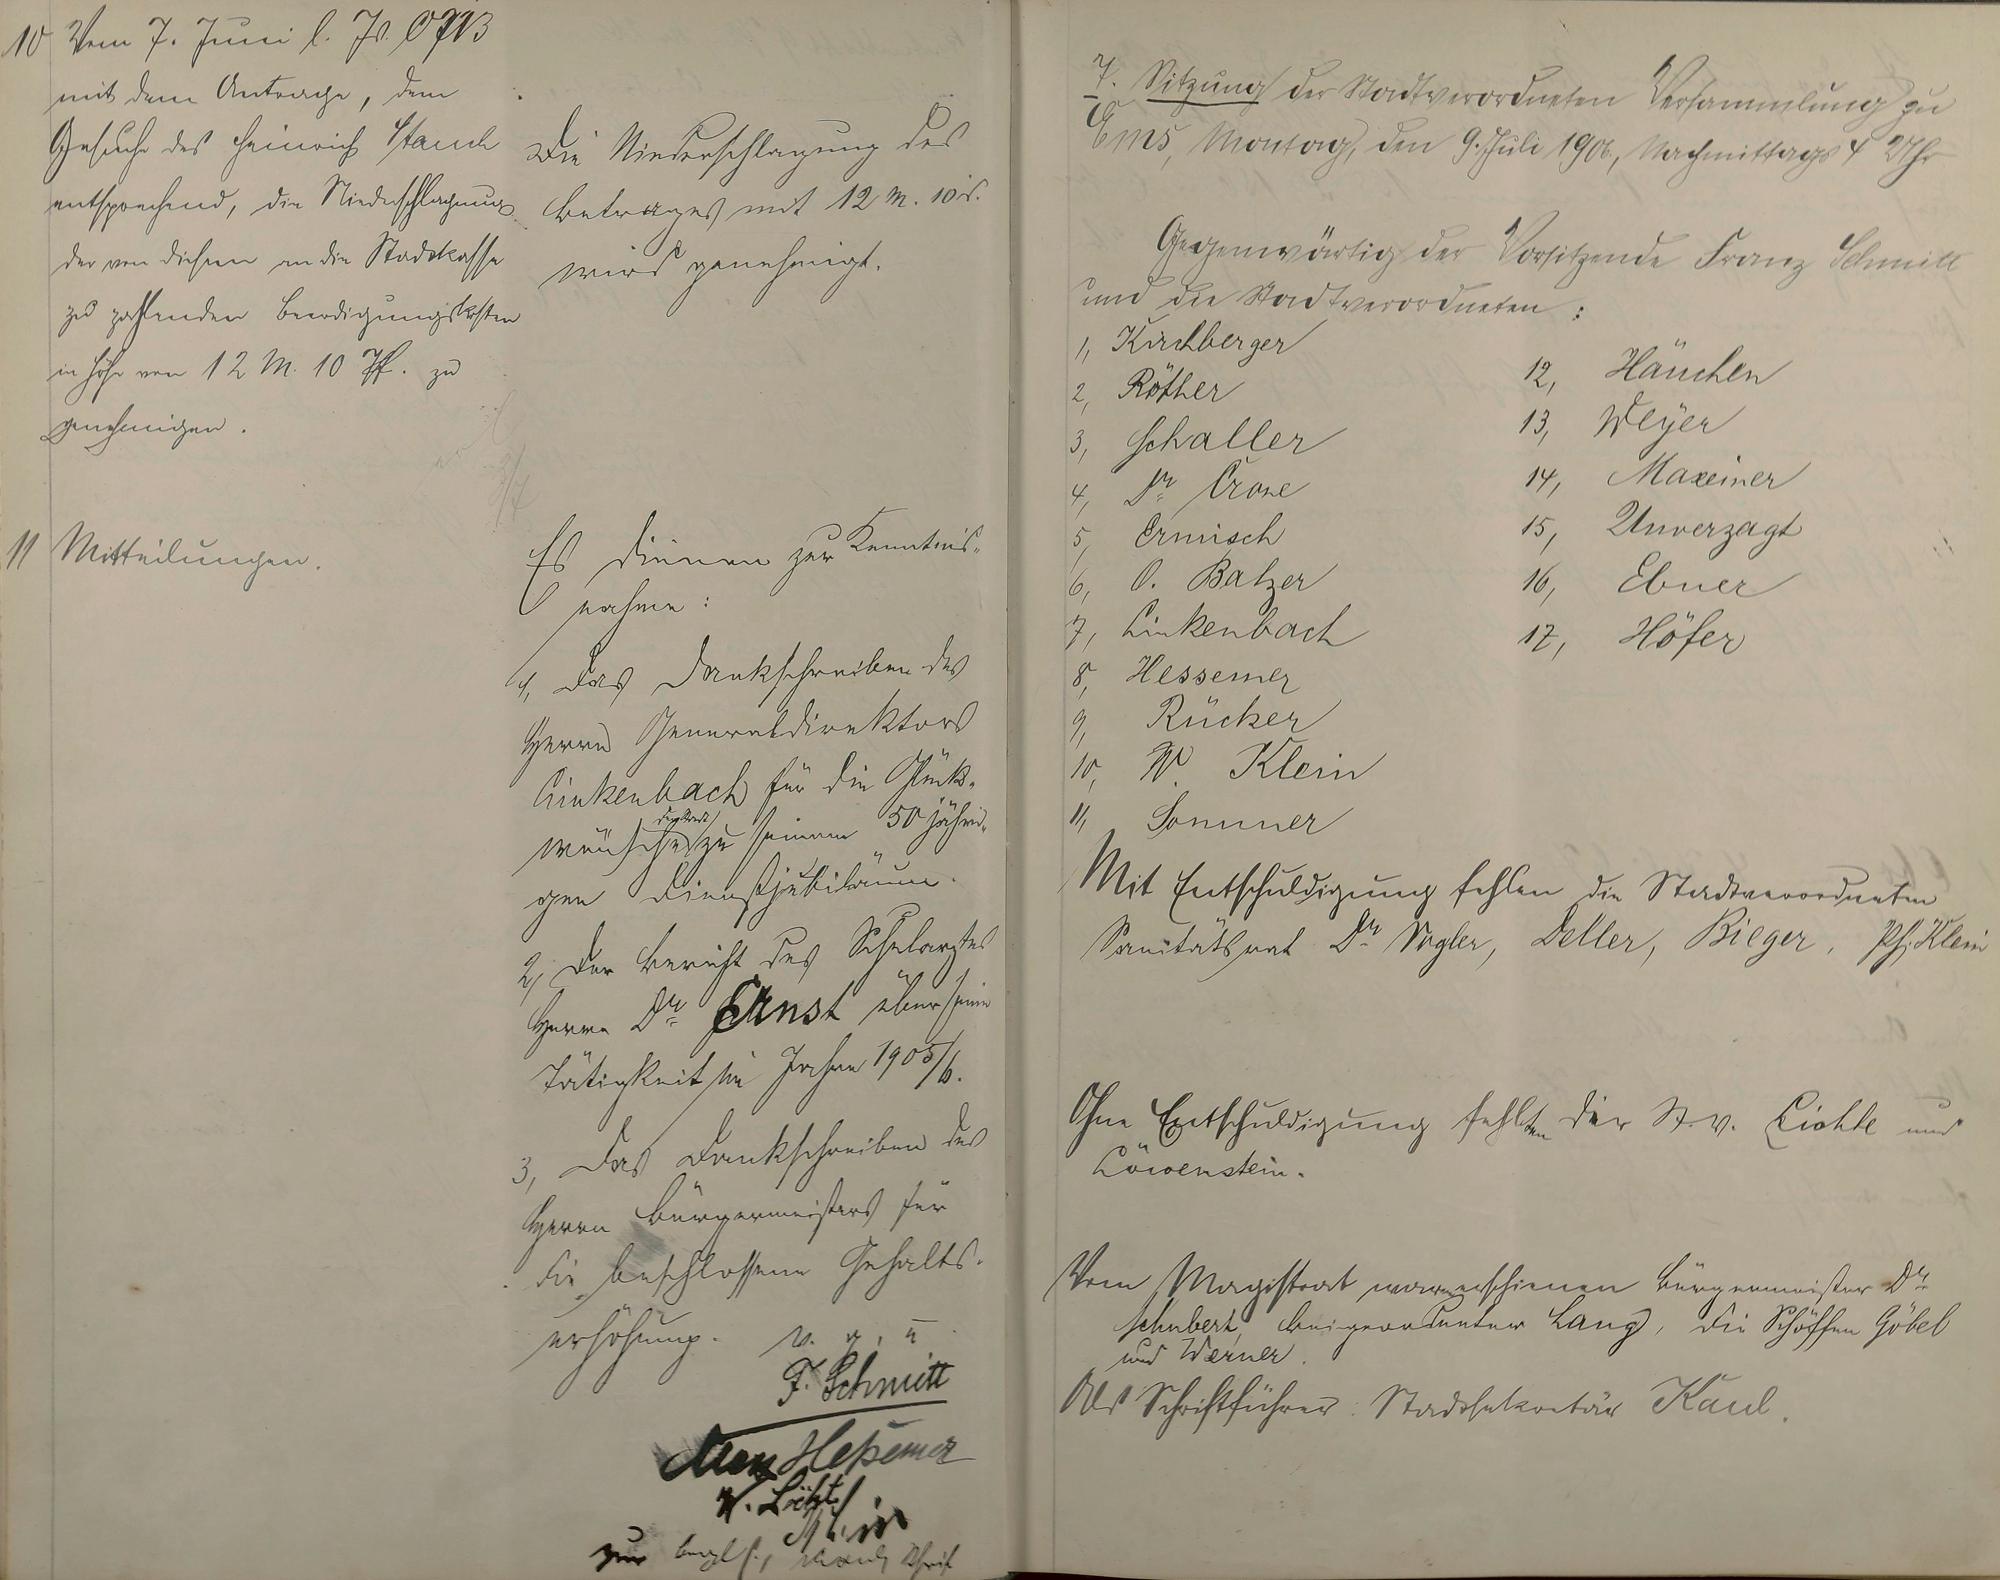 10 Vom 7. Juni l. Js.
mit dem Antrage, dem
Gesuche des Heinrich
entsprechend, die Niederschlagung
der von diesem an die Stadtkasse
zu zahlenden Beerdigungskosten
in Höhe von 12 M. 10 Pf. zu
genehmigen.
Die Niederschlagung des
Betrages mit 12 M. 10
wird genehmigt.
11 Mitteilungen.
Es dienen zur Kenntnis-
nahme:
1, Das Dankschreiben des
Herrn Generaldirektors
Linkenbach für die Glück-
wünsche zu seinem 50 jähri-
gen Dienstjubiläum.
2, Der Bericht des Schularztes
Herrn Dr. Ernst über seine
Tätigkeit im Jahre 1905/6.
3, Das Dankschreiben des
Herrn Bürgermeisters für
die beschlossene Gehalts-
erhöhung. v. g. u.
F. Schmitt
Heßemer
zur
7. Sitzung der Stadtverordneten Versammlung zu
Ems, Montag, den 9. Juli 1906, Nachmittags 4 Uhr
Gegenwärtig der Vorsitzende Franz Schmitt
und die Stadtverordneten:
1, Kirchberger
2, Röther
3, Schaller
4, Dr. Crone
5, Ermisch
6, O. Balzer
7, Linkenbach
8, Hessemer
9, Rücker
10, W. Klein
11, Sommer
12, Häuchen
13, Weyer
14, Maxeiner
15, Unverzagt
16, Ebner
17, Höfer
Mit Entschuldigung fehlen die Stadtverordneten
Sanitätsrat Dr. Vogler, Deller, Bieger, Ph. Klein
Ohne Entschuldigung fehlten der St.v. Lichte und
Löwenstein.
Vom Magistrat waren erschienen Bürgermeister Dr.
Schubert, Beigeordneter Lang, die Schöffen Göbel
und Werner.
Als Schriftführer: Stadtsekretär Kaul.